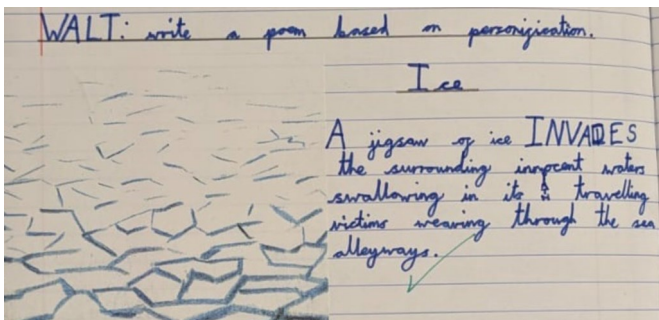 WALT: write a poem based on personification.
Ice
A jigsaw of ice INVADES
the surrounding innocent waters
swallowing in its travelling
victims weaving through the sea
alleyways.